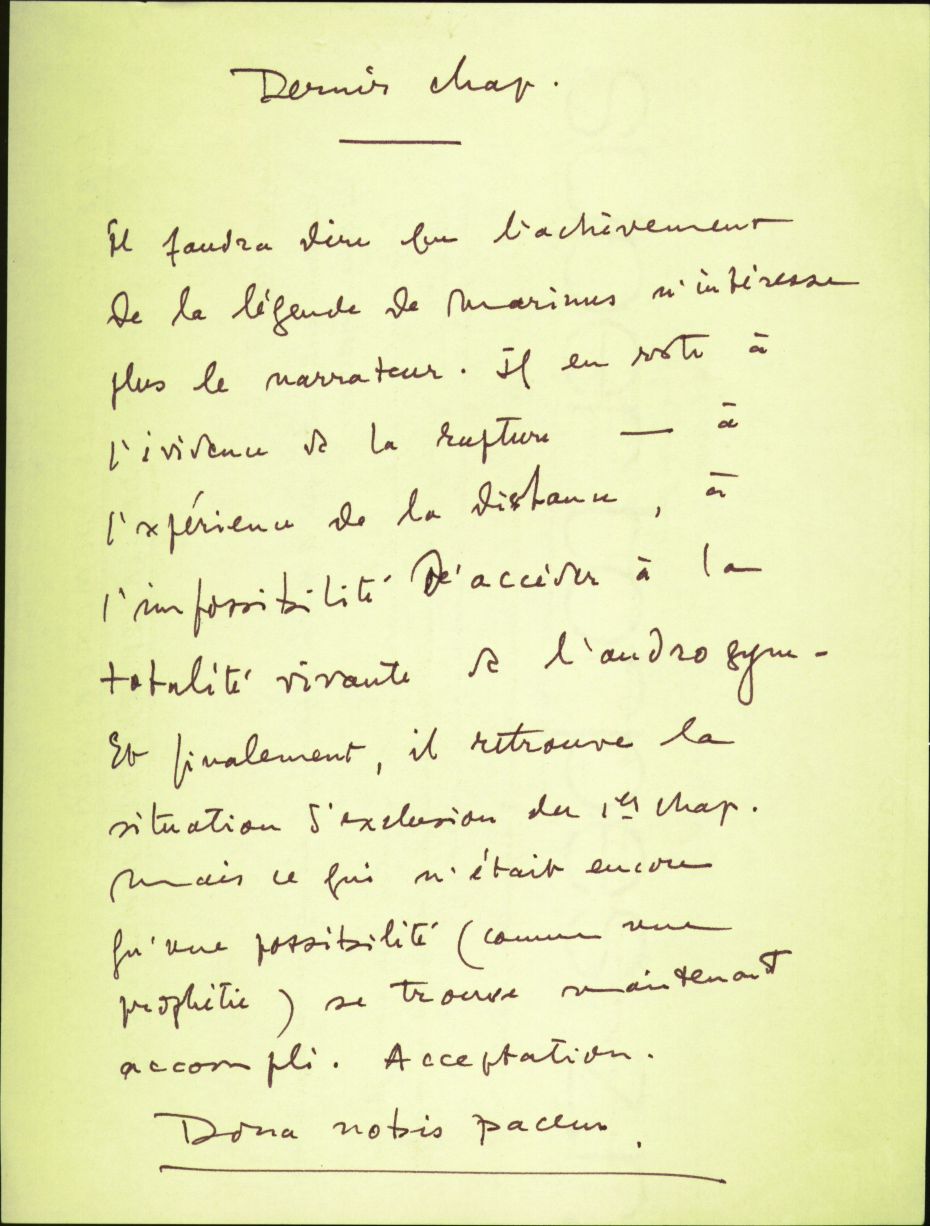 Dernier chap.
Il faudra dire que l'achèvement
de la légende de Marinus n'intéresse
plus le narrateur. Il en reste à
l'évidence de la rupture — à
l'expérience de la distance, à
l'impossibilité d'accéder à la
totalité vivante de l'androgyne.
Et finalement, il retrouve la
situation d'exclusion du 1er chap.
Mais ce qui n'était encore
qu'une possibilité (comme une
prophétie) se trouve maintenant
accompli. Acceptation.
Dona nobis pacem.